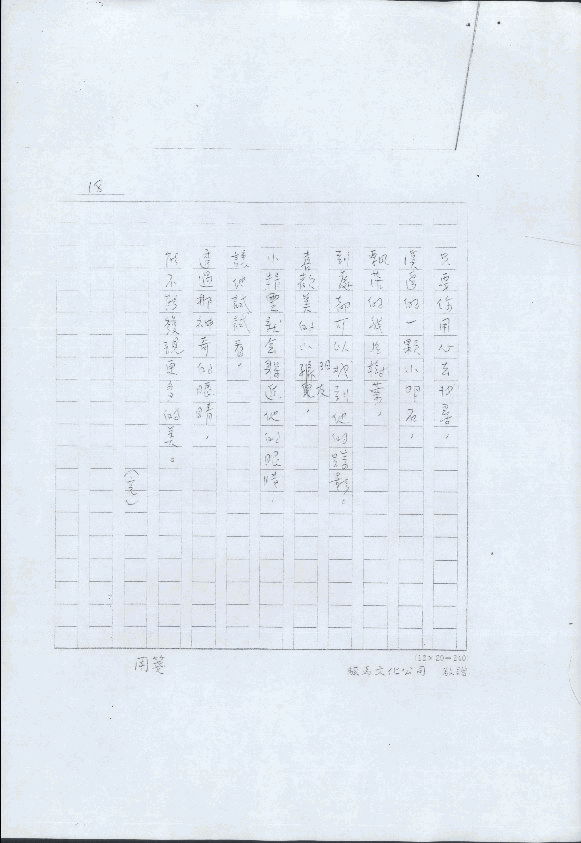 18
只要你用心去找尋，
溪邊的一顆小卵石，
飄落的幾片樹葉，
到處都可以找到他的蹤影。
喜歡美的小朋友，
小精靈就會躲進他的眼睛，
讓他試試看，
透過那神奇的眼睛，
能不能發現更多的美。
(完)
(12×20=240)
文化公司 敬贈
用箋